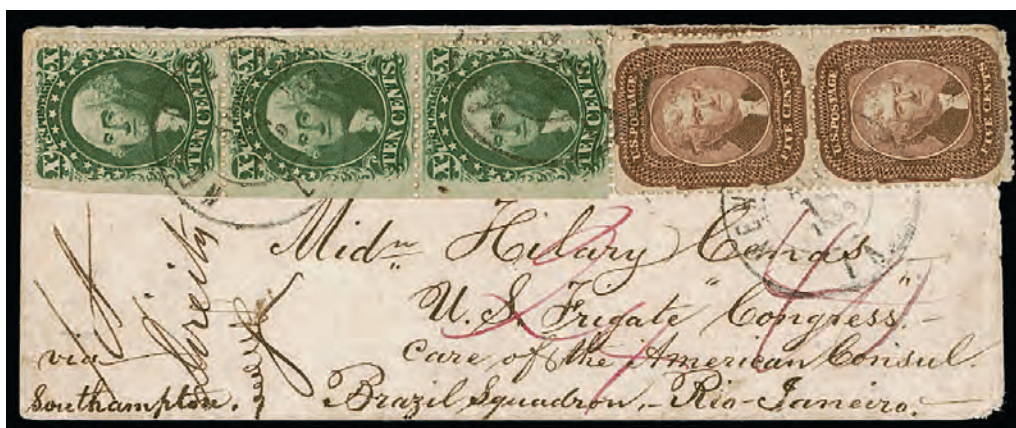 TEN CENTS.
TEN CENTS.
TEN CENTS.
U.S. POSTAGE
FIVE CENTS
U.S. POSTAGE
FIVE CENTS
Mid<sup>n</sup> Hilary Cenas
U.S. Frigate "Congress."-
Care of the American Consul.
Brazil Squadron,- Rio-Janeiro.
via
Southampton.